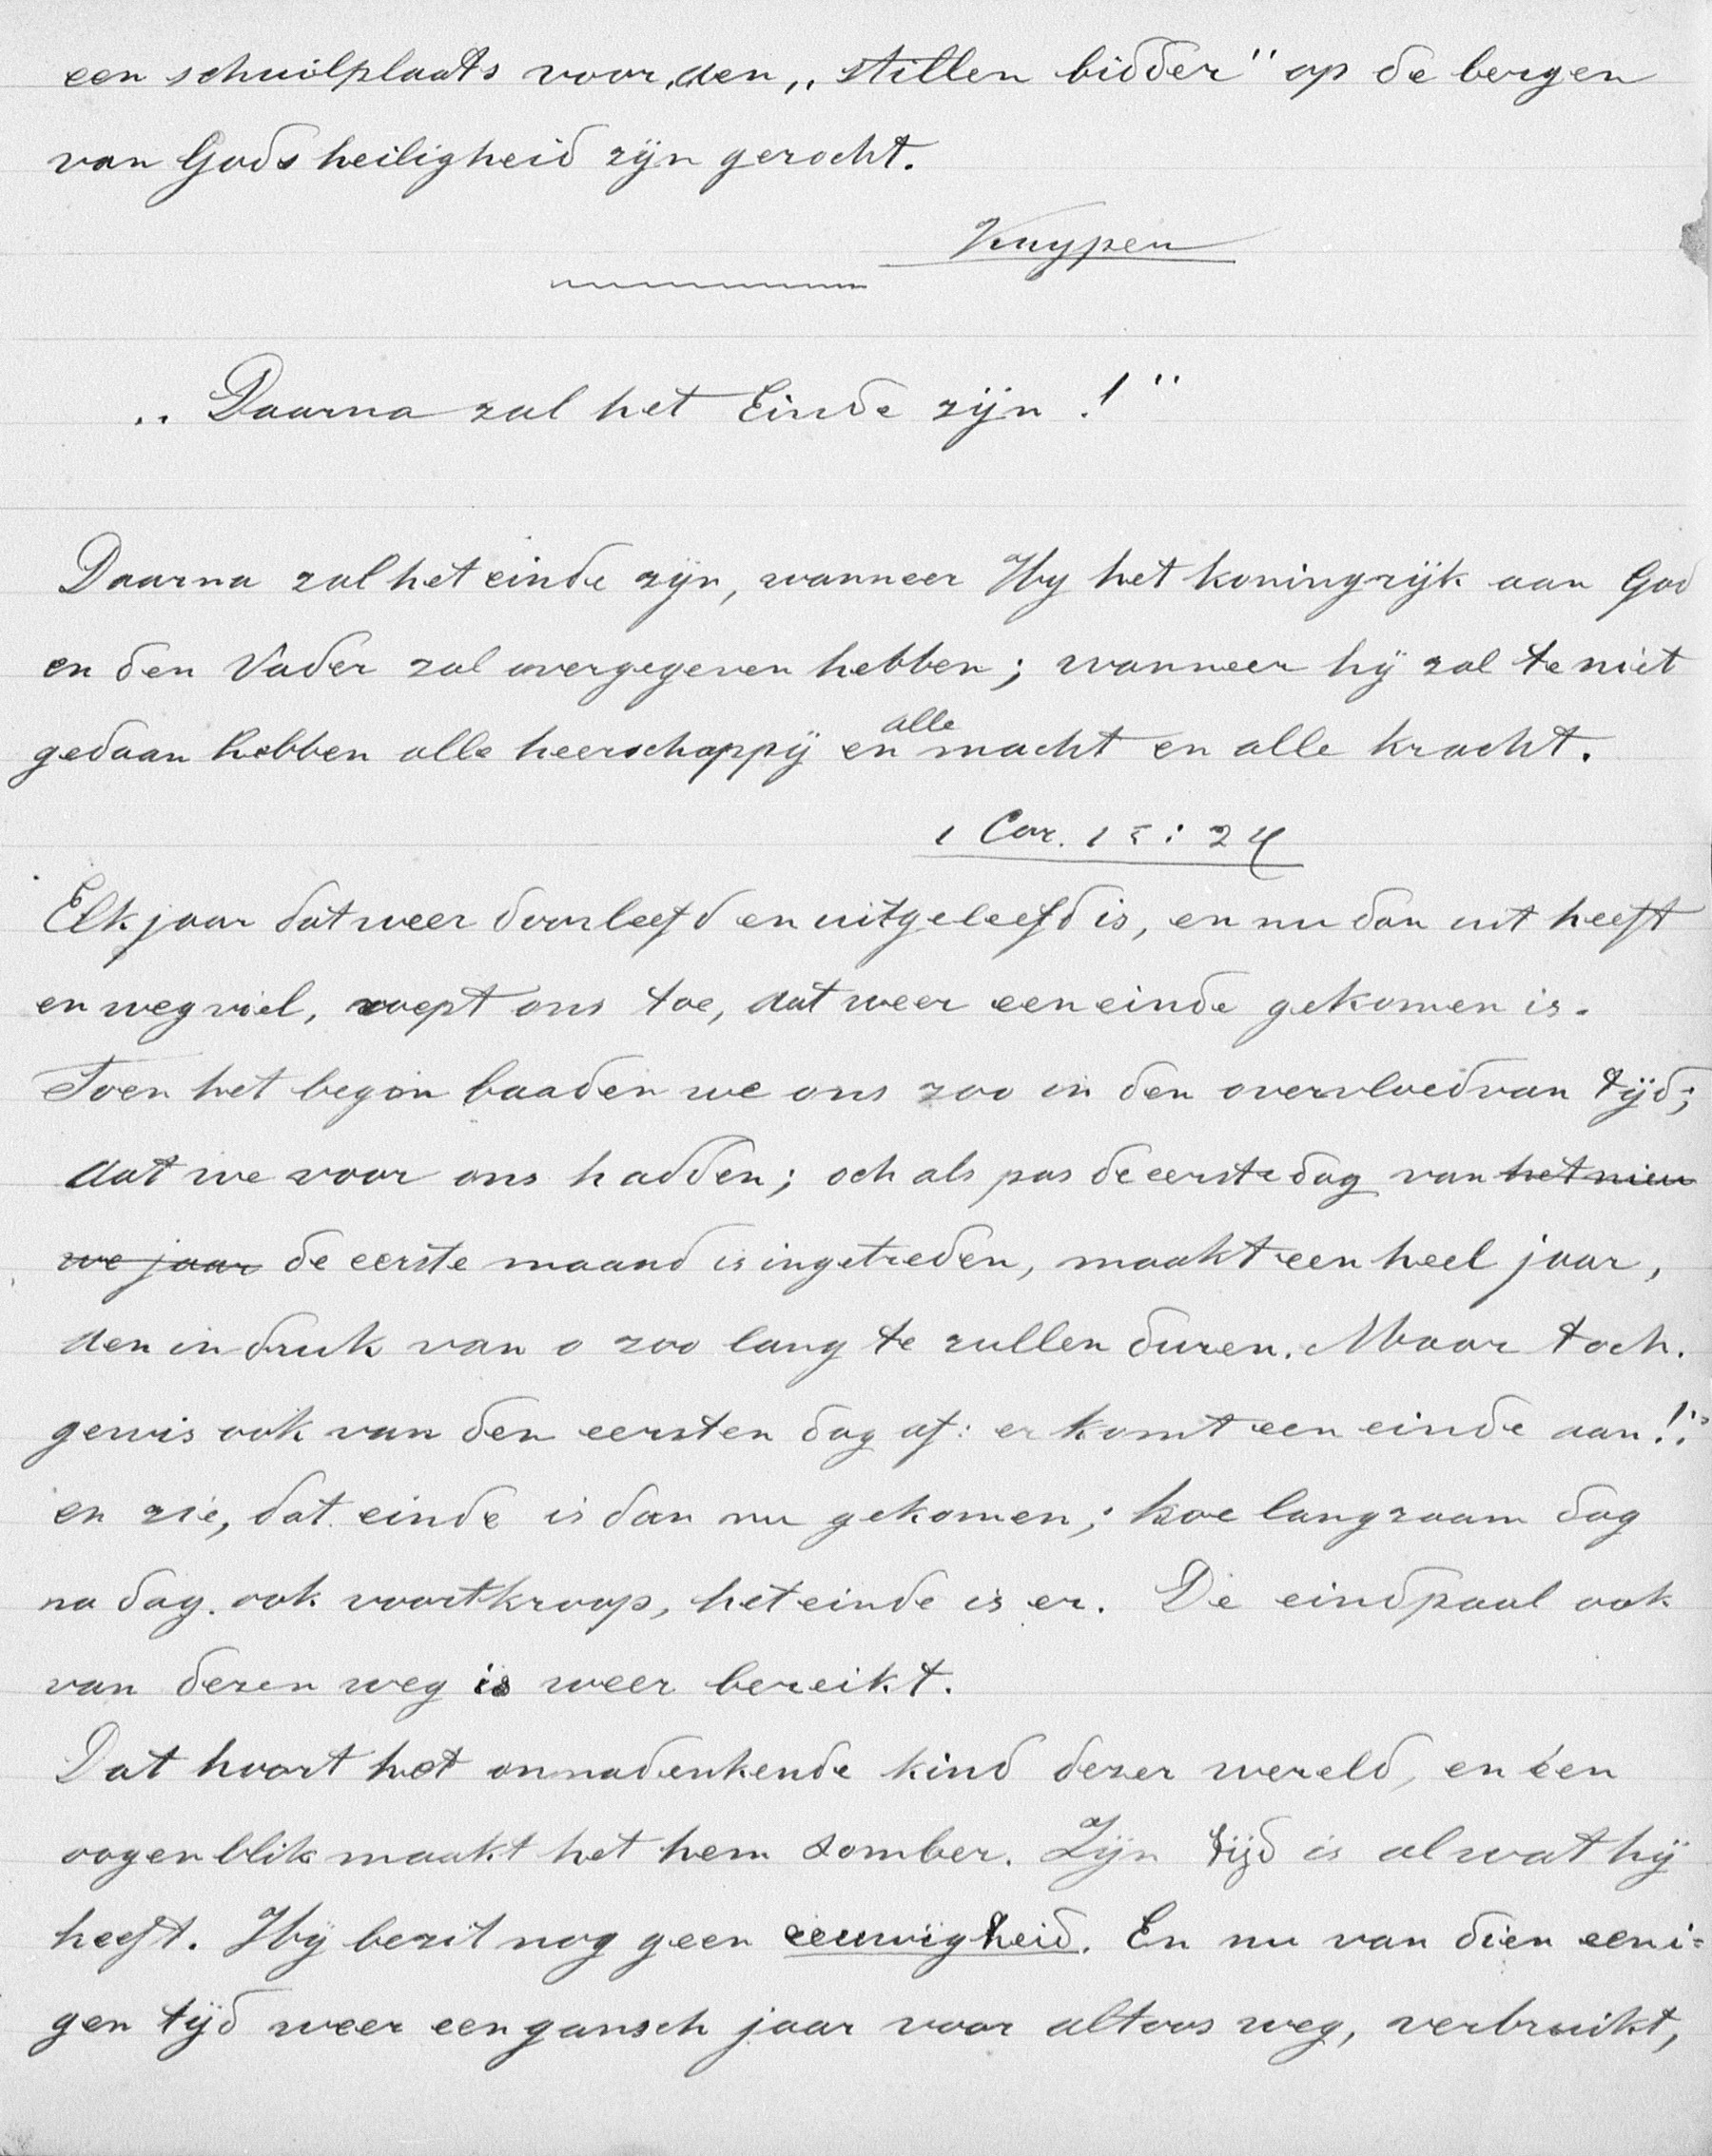 een schuilplaats voor den „stillen bidder" op de bergen
van Gods heiligheid zijn gerocht.
Kuyper
„Daarna zal het Einde zijn!"
Daarna zal het einde zijn, wanneer Hij het koningrijk aan God
en den Vader zal overgegeven hebben; wanneer hij zal te niet
gedaan hebben alle heerschappij en alle macht en alle kracht.
1 Cor. 15:24
Elk jaar dat weer doorleefd en uitgeleefd is, en nu dan uit heeft
en weg viel, roept ons toe, dat weer een einde gekomen is.
Toen het begon baadden we ons zoo in den overvloed van tijd;
dat we voor ons hadden; och als pas de eerste dag van het nieu
we jaar de eerste maand is ingetreden, maakt een heel jaar,
den indruk van o zoo lang te zullen duren. Maar toch.
gewis ook van den eersten dag af: er komt een einde aan!:
en zie, dat einde is dan nu gekomen; hoe langzaam dag
na dag ook voortkroop, het einde is er. De eindpaal ook
van dezen weg is weer bereikt.
Dat hoort het onnadenkende kind dezer wereld, en éen
oogenblik maakt het hem somber. Zijn tijd is al wat hij
heeft. Hij bezit nog geen eeuwigheid. En nu van dien eeni=
gen tijd weer een gansch jaar voor altoos weg, verbruikt,